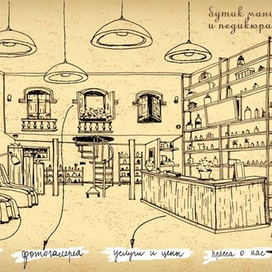 бутик мани
и педикюра
фотогалерея
услуги и цены
пресса о нас